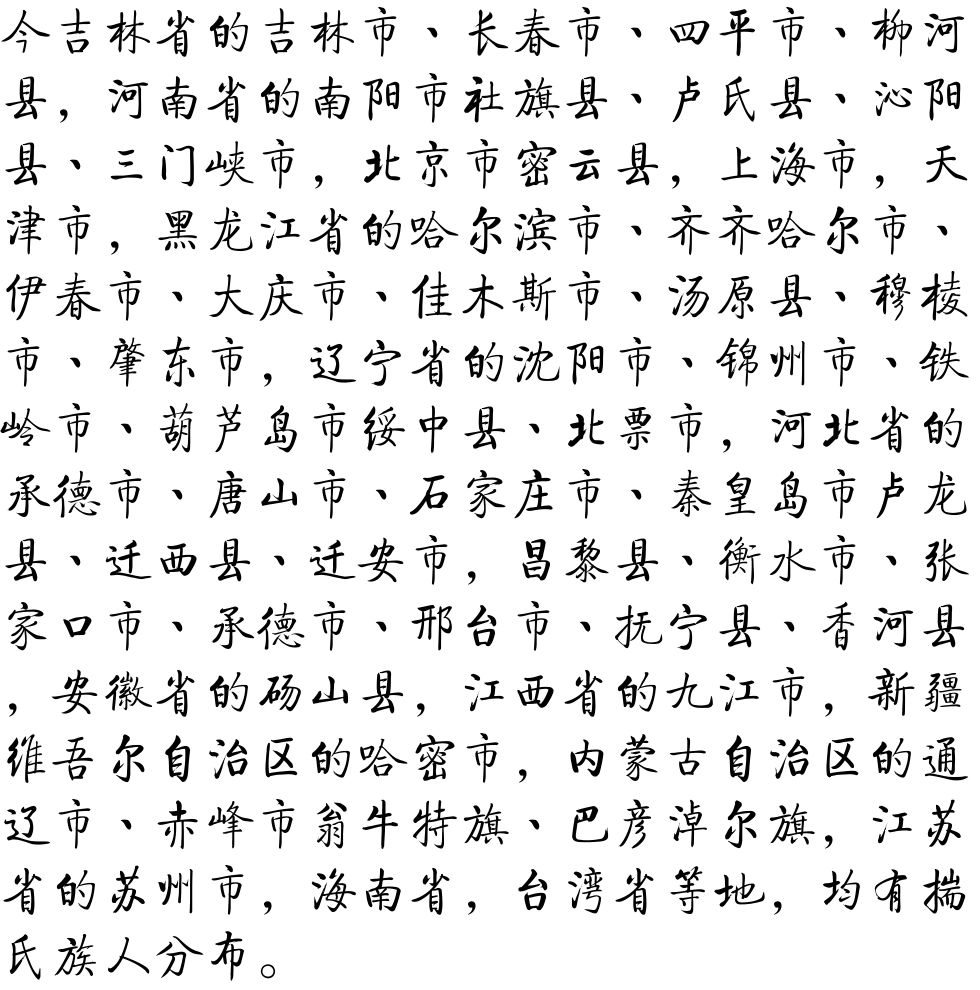 今吉林省的吉林市、长春市、四平市、柳河
县，河南省的南阳市社旗县、卢氏县、沁阳
县、三门峡市，北京市密云县，上海市，天
津市，黑龙江省的哈尔滨市、齐齐哈尔市、
伊春市、大庆市、佳木斯市、汤原县、穆棱
市、肇东市，辽宁省的沈阳市、锦州市、铁
岭市、葫芦岛市绥中县、北票市，河北省的
承德市、唐山市、石家庄市、秦皇岛市卢龙
县、迁西县、迁安市，昌黎县、衡水市、张
家口市、承德市、邢台市、抚宁县、香河县
，安徽省的砀山县，江西省的九江市，新疆
维吾尔自治区的哈密市，内蒙古自治区的通
辽市、赤峰市翁牛特旗、巴彦淖尔旗，江苏
省的苏州市，海南省，台湾省等地，均有揣
氏族人分布。